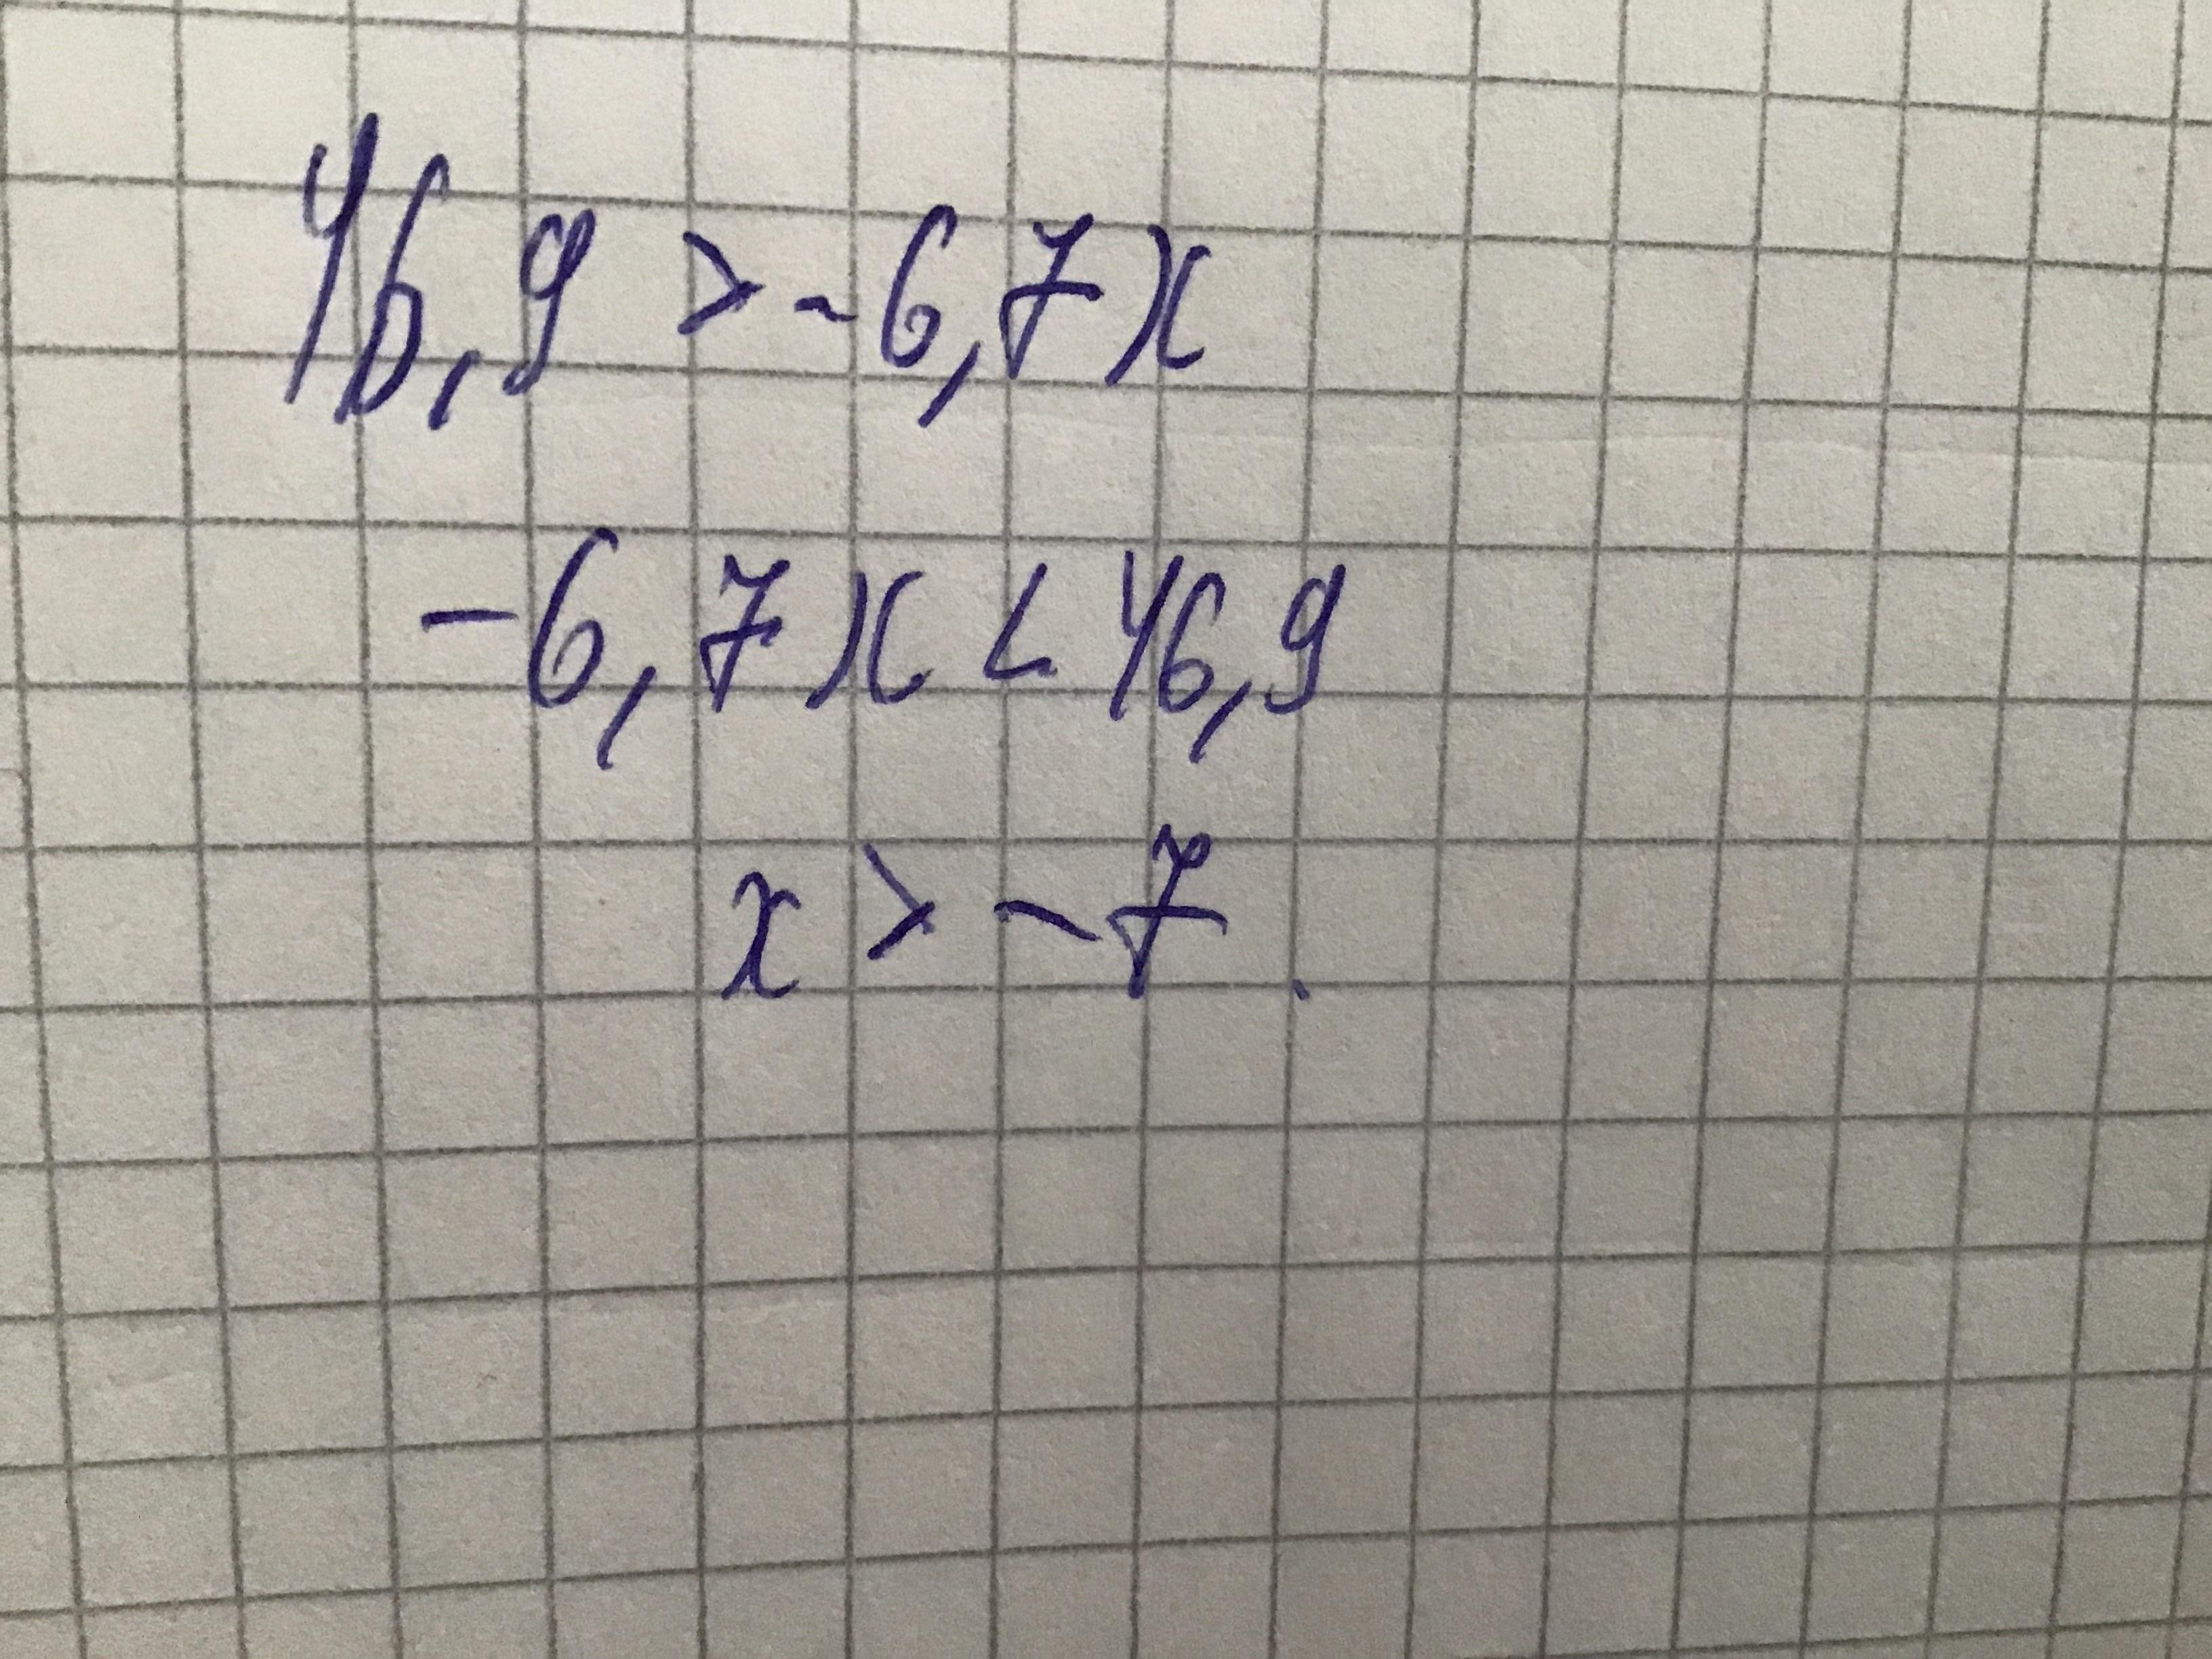 46,9 > -6,7x
-6,7x < 46,9
x > -7.